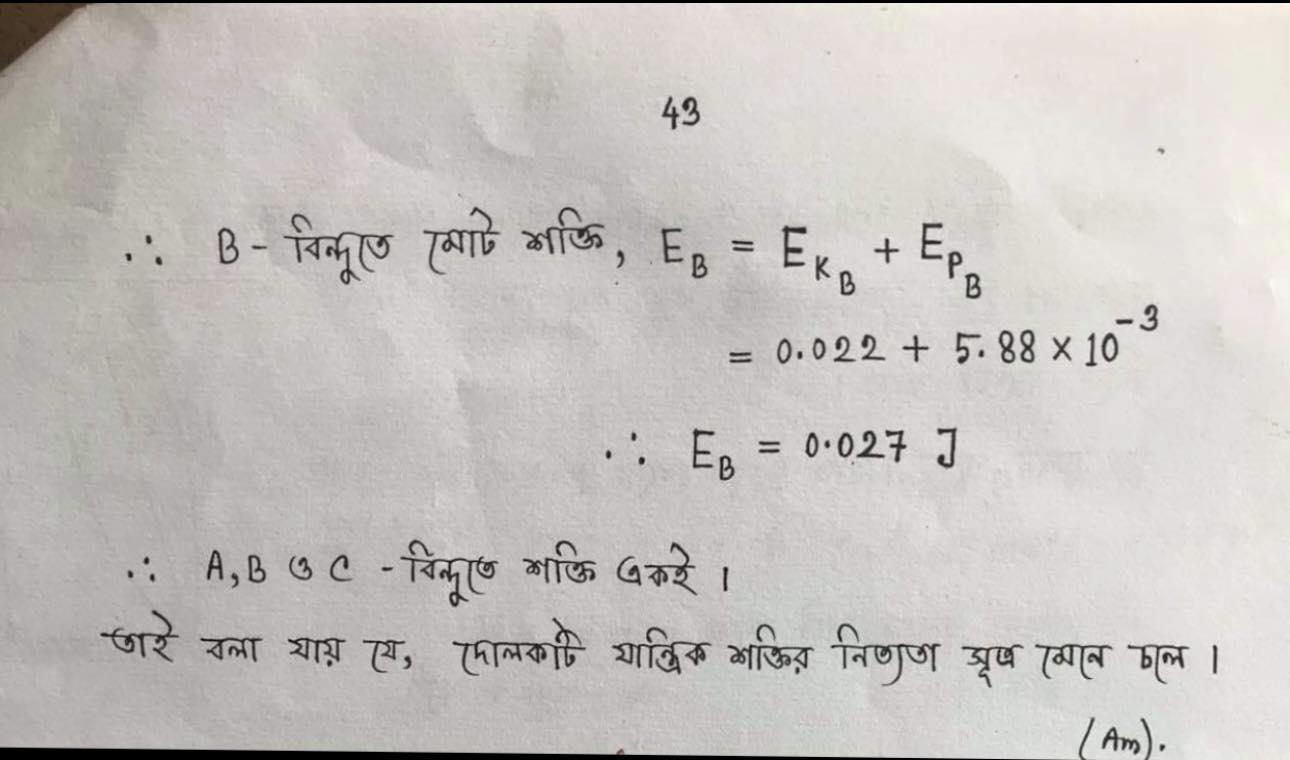 43
∴ B - বিন্দুতে মোট শক্তি, E_B = E_{K_B} + E_{P_B}
= 0.022 + 5.88 × 10^{-3}
∴ E_B = 0.027 J
∴ A, B ও C - বিন্দুতে শক্তি একই।
তাই বলা যায় যে, দোলকটি যান্ত্রিক শক্তির নিত্যতা সূত্র মেনে চলে।
(Am).